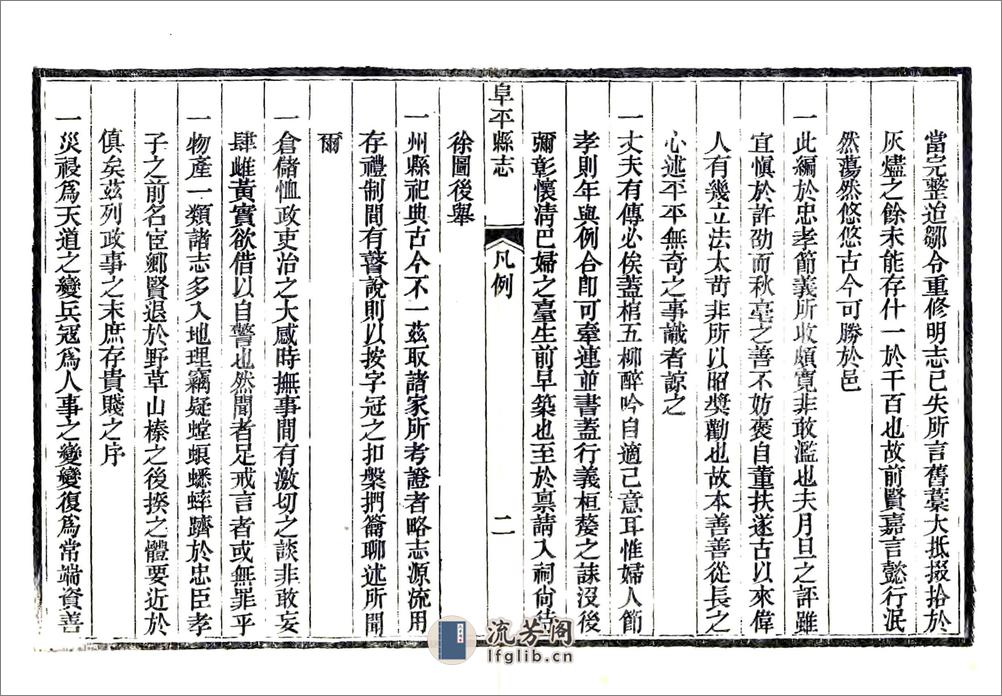 當完整迨鄒令重修明志已失所言舊藁大抵掇拾於
灰燼之餘未能存什一於千百也故前賢嘉言懿行泯
然蕩然悠悠古今可勝於邑
一此編於忠孝節義所收頗寬非敢濫也夫月旦之評雖
宜愼於許劭而秋毫之善不妨褒自董扶遂古以來偉
人有幾立法太苛非所以昭奬勸也故本善善從長之
心述平平無奇之事識者諒之
一丈夫有傳必俟蓋棺五柳醉吟自適己意耳惟婦人節
孝則年與例合卽可牽連並書蓋行義桓嫠之誄沒後
彌彰懷淸巴婦之臺生前早築也至於禀請入祠尙待
徐圖後舉
阜平縣志
凡例
二
一州縣祀典古今不一茲取諸家所考證者略志源流用
存禮制間有瞽說則以按字冠之扣槃捫籥聊述所聞
爾
一倉儲恤政吏治之大感時撫事間有激切之談非敢妄
肆雌黃實欲借以自警也然聞者足戒言者或無罪乎
一物產一類諸志多入地理竊疑螳蜋蟋蟀躋於忠臣孝
子之前名臣鄕賢退於野草山榛之後揆之體要近於
傎矣茲列政事之末庶存貴賤之序
一災祲爲天道之變兵寇爲人事之變變復爲常端資善
流芳阁
lfglib.cn